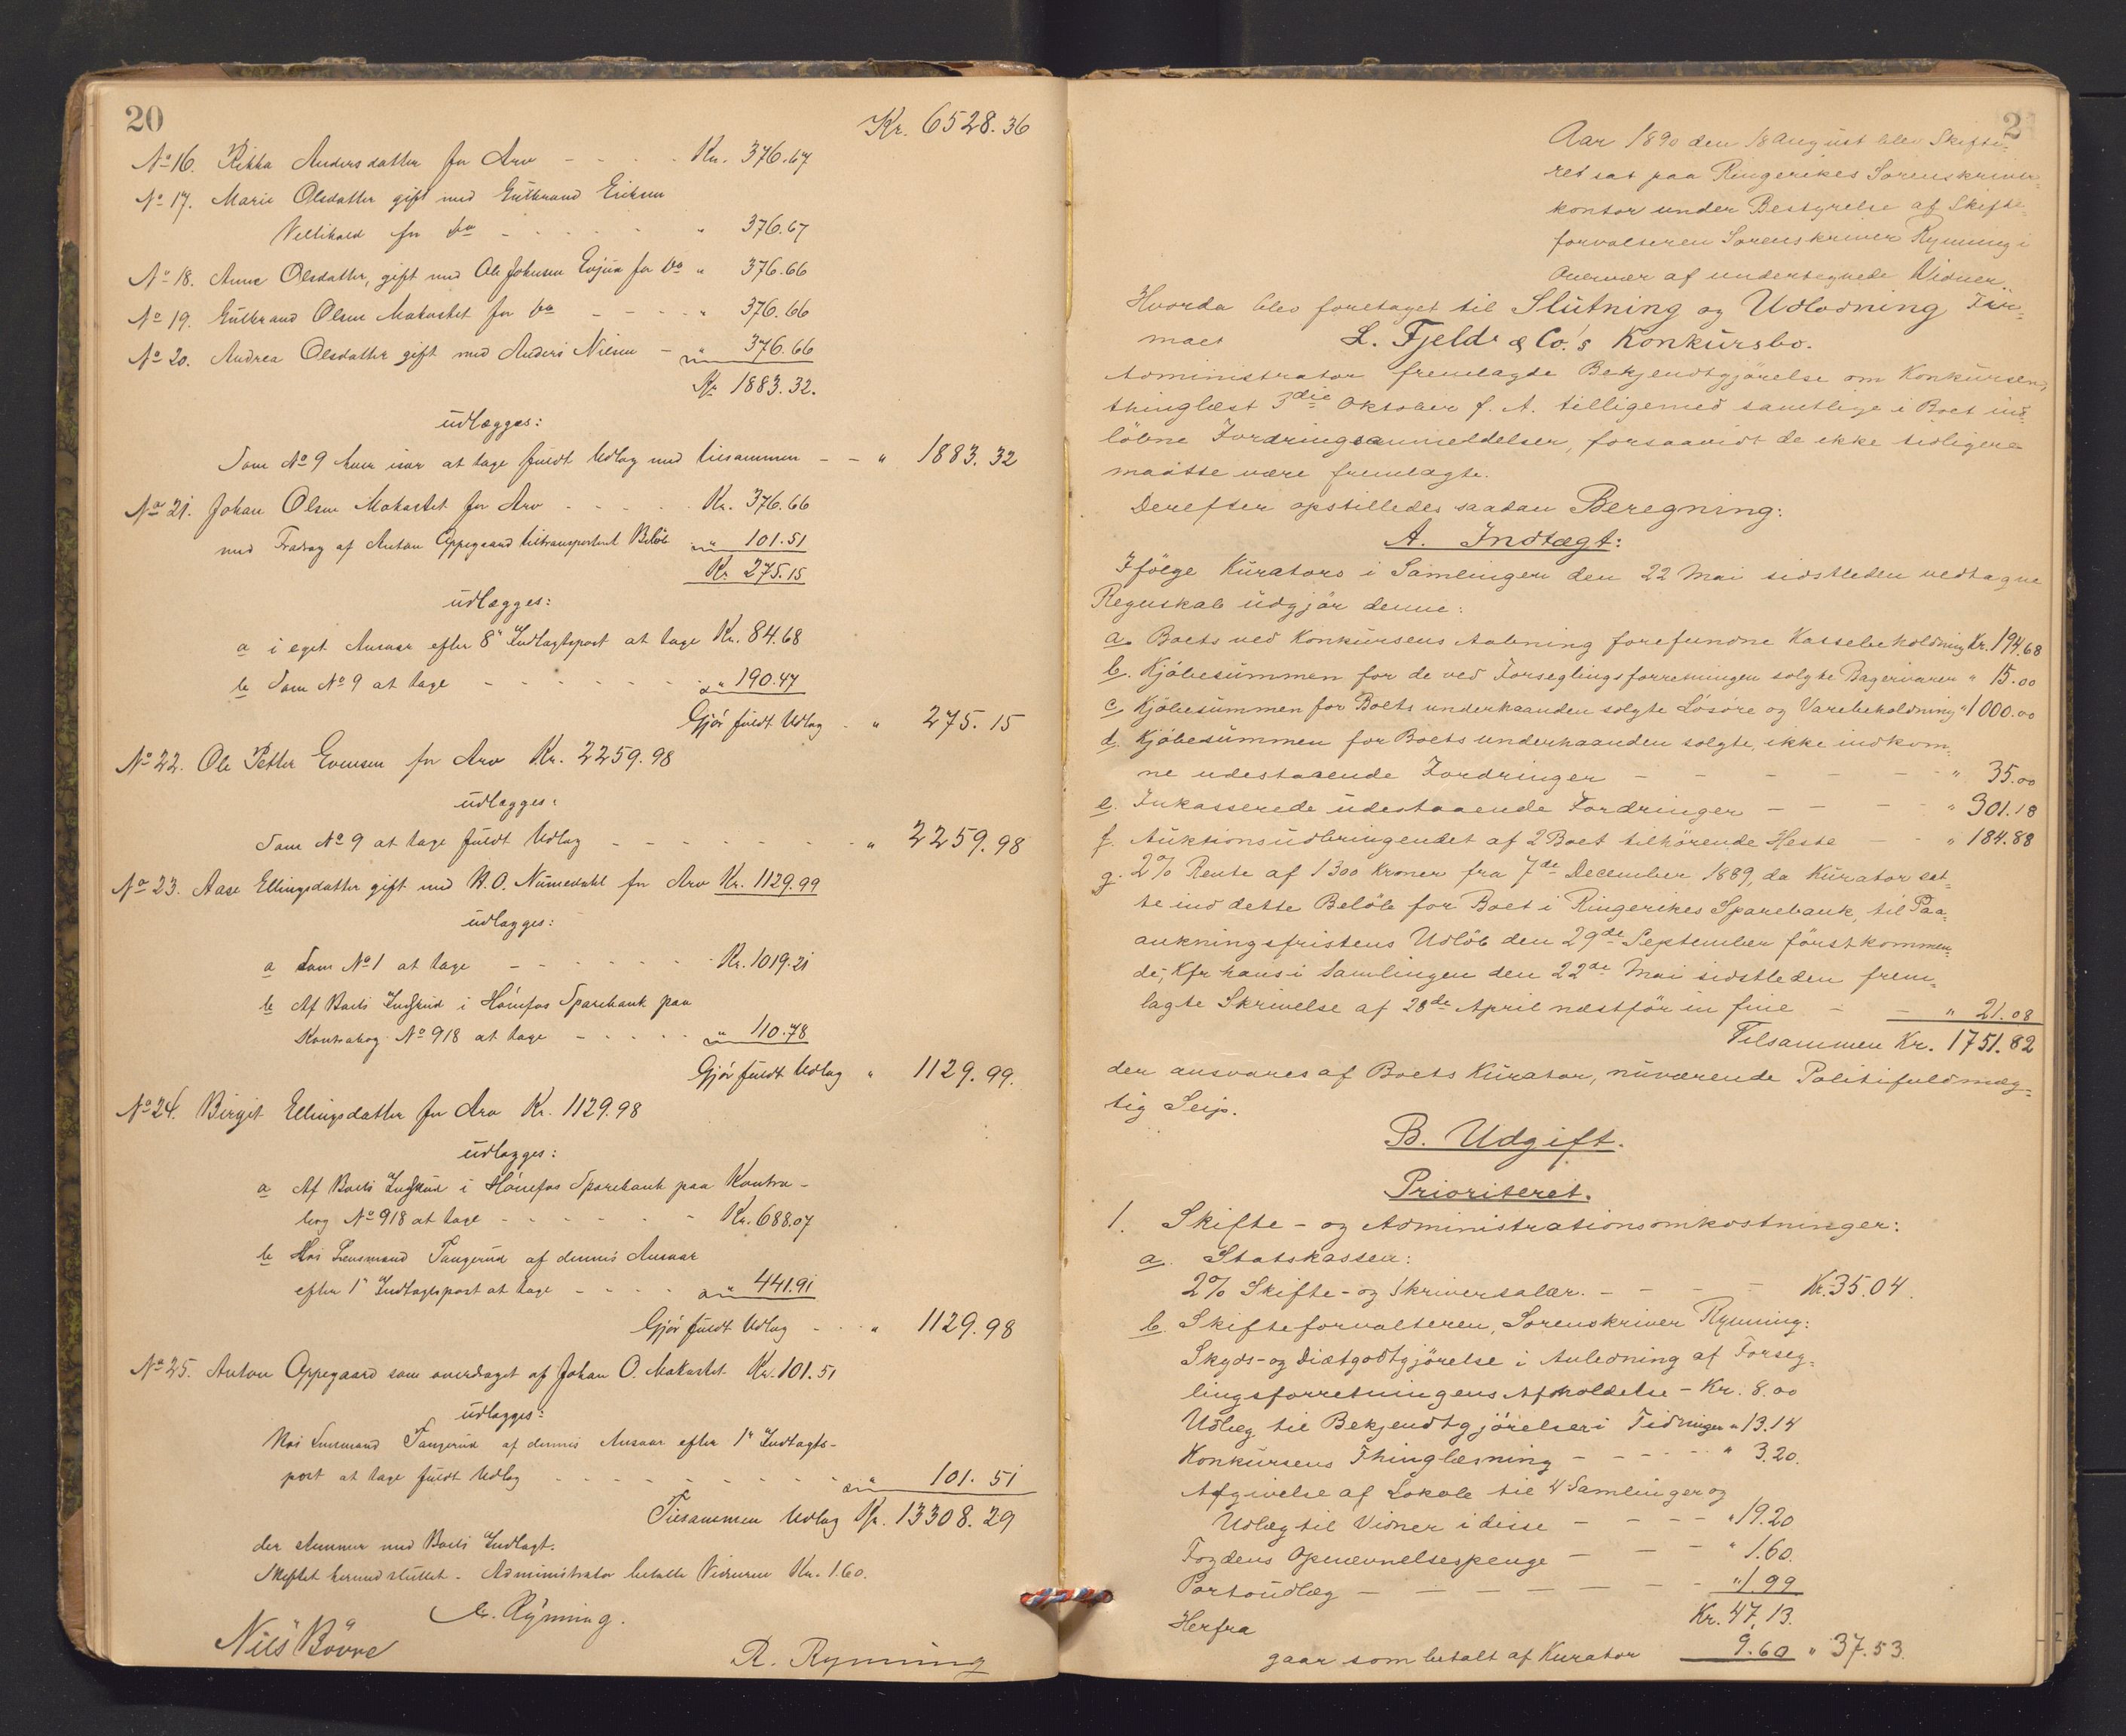 20
Kr. 6528.36
No 16. Kitha Andersdatter for Arv - - - - Kr. 376.67
No 17. Marie Olsdatter gift med Gulbrand Eriksen
for do - - - - " 376.67
No 18. Anne Olsdatter, gift med Ole Johnsen for do " 376.66
No 19. Gulbrand Olsen Makastet for do - - - - " 376.66
No 20. Andrea Olsdatter gift med Anders Nilsen - " 376.66
Kr 1883.32.
udlægges:
Som No 9 hver især at tage fuldt Udlæg med tilsammen - - " 1883.32
No 21. Johan Olsen Makastet for Arv - - - - Kr. 376.66
med Fradrag af Anton Oppegaard tiltransporteret Beløb " 101.51
Kr 275.15
udlægges:
a i eget Ansvar efter 8de Indtægtspost at tage Kr. 84.68
b Som No 9 at tage - - - - - - " 190.47
Gjør fuldt Udlæg - " 275.15
No 22. Ole Petter Evensen for Arv Kr. 2259.98
udlægges:
Som No 9 at tage fuldt Udlæg - - - - - - " 2259.98
No 23. Aase Ellingsdatter gift med N.O. Numedahl for Arv Kr. 1129.99
udlægges:
a Som No 1 at tage - - - - - - Kr. 1019.21
b Af Boets Indskud i Hönefos Sparebank paa
Kontrabog No 918 at tage - - - - - " 110.78
Gjør fuldt Udlæg " 1129.99.
No 24. Birgit Ellingsdatter for Arv Kr. 1129.98
udlægges:
a Af Boets Indskud i Hönefos Sparebank paa Kontra-
bog No 918 at tage - - - - - - Kr. 688.07
b Hos Lensmand Tangerud af dennes Ansvar
efter 1ste Indtægtspost at tage - - - - " 441.91
Gjør fuldt Udlæg - - - " 1129.98
No 25. Anton Oppegaard som overdraget af Johan O. Makastet Kr. 101.51
udlægges:
Hos Lensmand Tangerud af dennes Ansvar efter 1ste Indtægts-
post at tage fuldt Udlæg - - - - - - - - - " 101.51
Tilsammen Udlæg Kr. 13308.29
der stemmer med Boets Indtægt.
Skiftet hermed sluttet. Administrator betalte Vidnerne Kr. 1.60.
C. Rynning.
Nils Bövre
R. Rynning
2
Aar 1890 den 18 August blev Skifte-
ret sat paa Ringerikes Sorenskriver-
kontor under Bestyrelse af Skifte-
forvalteren Sorenskriver Rynning i
Overvær af undertegnede Vidner.
Hvorda blev foretaget til Slutning og Udlodning Fir-
maet L. Fjelde & Co.'s Konkursbo.
Administrator fremlagde Bekjendtgjörelse om Konkursen,
thinglæst 3die Oktober f. A. tilligemed samtlige i Boet ind-
löbne Fordringsanmeldelser, forsaavidt de ikke tidligere
maatte være fremlagte.
Derefter opstilledes saadan Beregning:
A. Indtægt:
Ifölge Kurators i Samlingen den 22 Mai sidstleden vedtagne
Regnskab udgjör denne:
a. Boets ved Konkursens Aabning forefundne Kassebeholdning Kr. 194.68
b. Kjöbesummen for de ved Forseglingsforretningen solgte Bagervarer " 15.00
c. Kjöbesummen for Boets underhaanden solgte Lösöre og Varebeholdning " 1000.00
d. Kjöbesummen for Boets underhaanden solgte, ikke indkom-
ne udestaaende Fordringer - - - - - - " 35.00
e. Inkasserede udestaaende Fordringer - - - - " 301.18
f. Auktionsudbringendet af 2 Boet tilhörende Heste - - " 184.88
g. 2% Rente af 1300 Kroner fra 7de December 1889, da Kurator sat-
te ind dette Belöb for Boet i Ringerikes Sparebank, til Paa-
ankningsfristens Udlöb den 29de September förstkommen-
de, Kfr hans i Samlingen den 22de Mai sidstleden frem-
lagte Skrivelse af 28de April næstför in fine - - " 21.08
Tilsammen Kr. 1751.82
der ansvares af Boets Kurator, nuværende Politifuldmæg-
tig Seip.
B. Udgift.
Prioriteret.
1. Skifte- og Administrationsomkostninger:
a. Statskassen:
2% Skifte- og Skriversalær. - - - - Kr. 35.04.
b. Skifteforvalteren, Sorenskriver Rynning:
Skyds- og Diætgodtgjörelse i Anledning af Forseg-
lingsforretningens Afholdelse - Kr. 8.00
Udlæg til Bekjendtgjörelser i Tidninger " 13.14
Konkursens Thinglæsning - - - - " 3.20.
Afgivelse af Lokale til 4 Samlinger og
Udlæg til Vidner i disse - - - - " 19.20
Fogdens Opnævnelsespenge - - - " 1.60.
Portoudlæg - - - - - - - " 1.99
Kr. 47.13.
Herfra
gaar som betalt af Kurator 9.60 " 37.53.